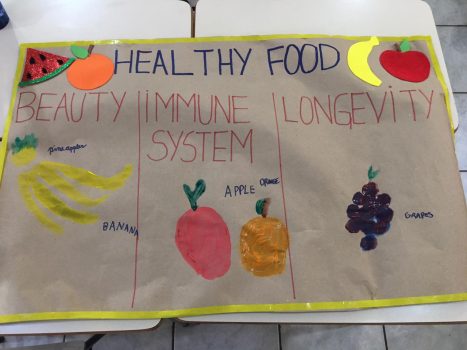 HEALTHY FOOD
BEAUTY
pineapples
BANANA
IMMUNE
SYSTEM
APPLE
ORANGE
LONGEVITY
GRAPES